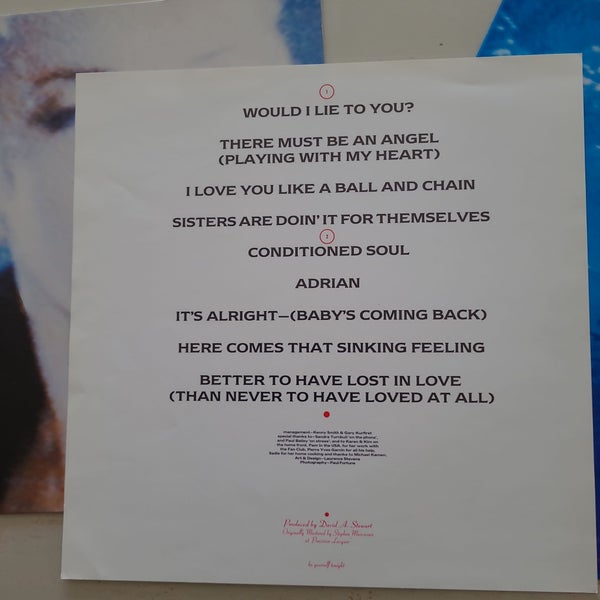 1
WOULD I LIE TO YOU?
THERE MUST BE AN ANGEL
(PLAYING WITH MY HEART)
I LOVE YOU LIKE A BALL AND CHAIN
SISTERS ARE DOIN' IT FOR THEMSELVES
2
CONDITIONED SOUL
ADRIAN
IT'S ALRIGHT—(BABY'S COMING BACK)
HERE COMES THAT SINKING FEELING
BETTER TO HAVE LOST IN LOVE
(THAN NEVER TO HAVE LOVED AT ALL)
management – Kenny Smith & Gary Kurfirst
special thanks to – Sandra Turnbull 'on the phone',
and Paul Bailey 'on stress', and to Karen & Kim on
the home front, Pam in the USA, for her work with
the Fan Club, Pierre Yves Garcin for all his help,
Sadie for her home cooking and thanks to Michael Kamen,
Art & Design – Laurence Stevens
Photography – Paul Fortune
Produced by David A. Stewart
Originally Mastered by Stephen Marcussen
at Precision Lacquer
be yourself tonight